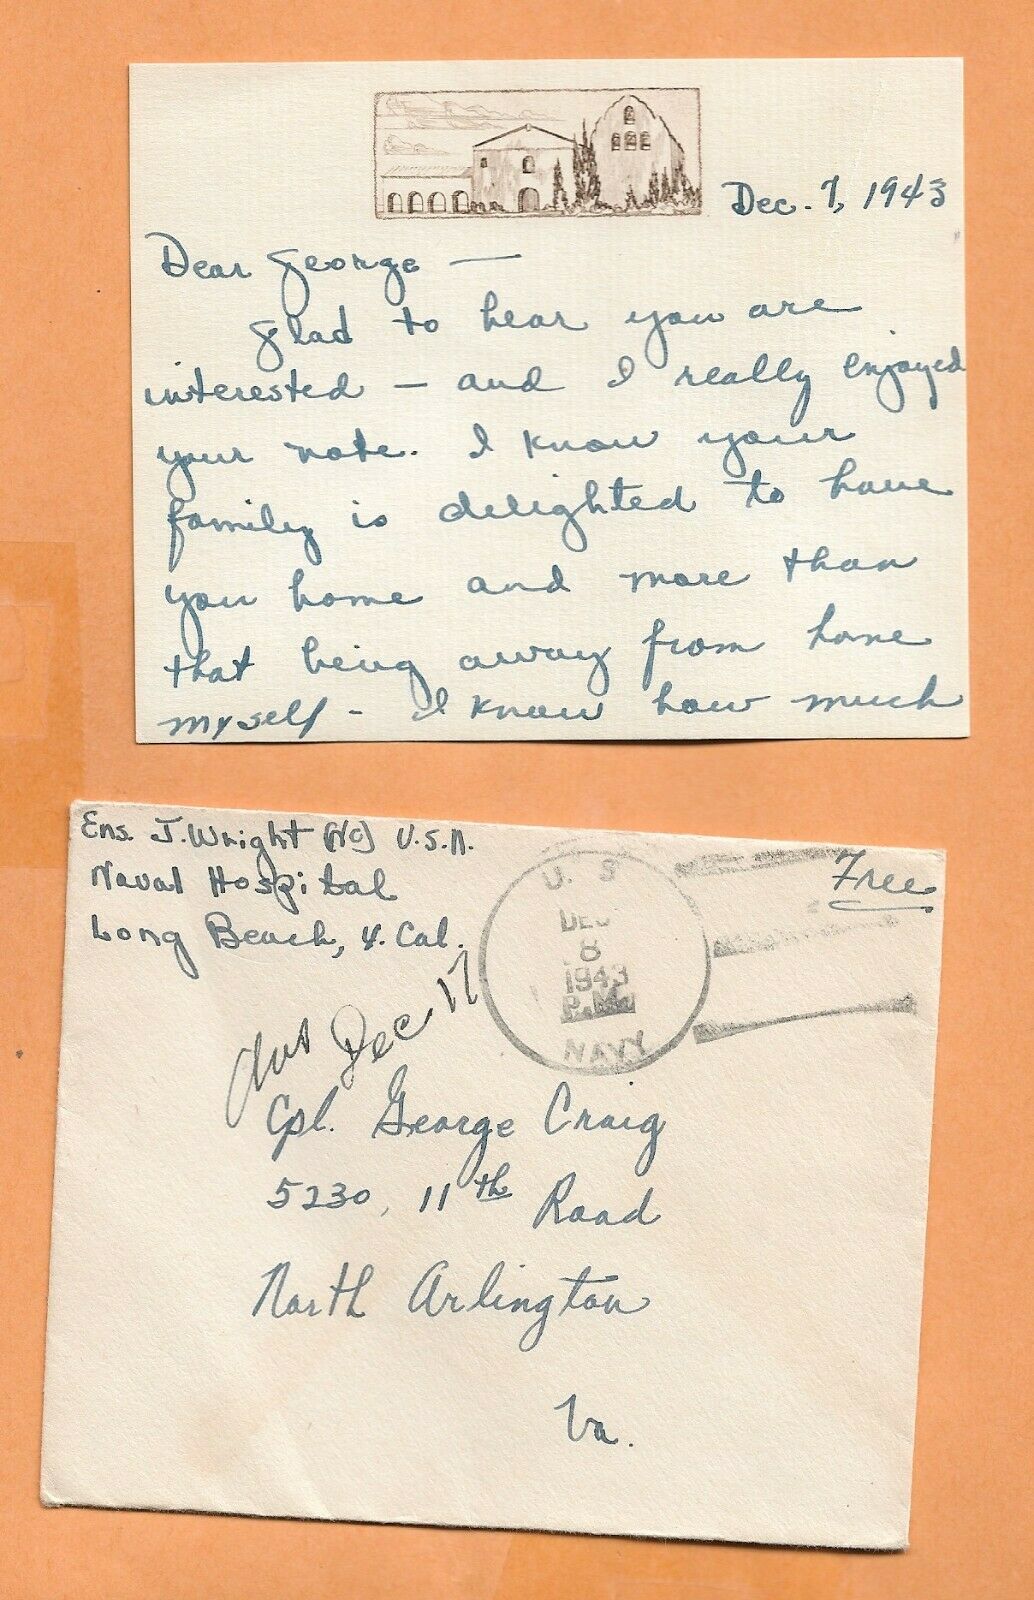 Dec. 7, 1943
Dear George —
Glad to hear you are
interested — and I really enjoyed
your note. I know your
family is delighted to have
you home and more than
that being away from home
myself - I know how much
Ens. J. Wright (NC) U.S.N.
Naval Hospital
Long Beach, 4. Cal.
Free
U. S.
DEC
8
1943
P.M.
NAVY
Dec 17
Cpl. George Craig
5230, 11th Road
North Arlington
Va.